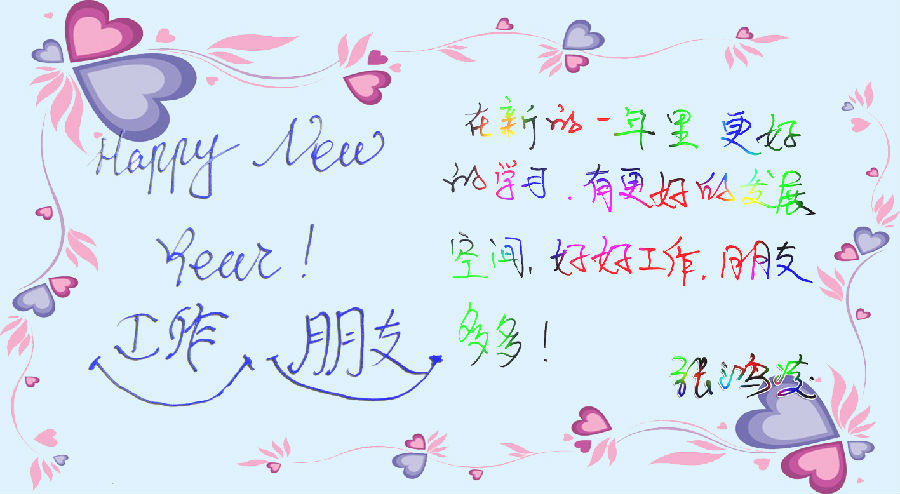 Happy New
Year!
工作 朋友
在新的一年里 更好
的学习.有更好的发展
空间,好好工作,朋友
多多!
张鸿凌